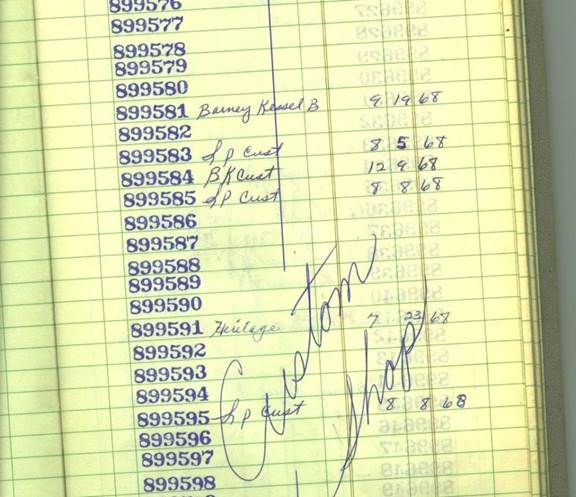 899576
899577
899578
899579
899580
899581 Barney Kessel B 9 19 68
899582
899583 L P Cust 8 5 68
899584 BK Cust 12 9 68
899585 L P Cust 8 8 68
899586
899587
899588
899589
899590
899591 Heritage 7 23 68
899592
899593
899594
899595 L P Cust 8 8 68
899596
899597
899598
Custom
Shop